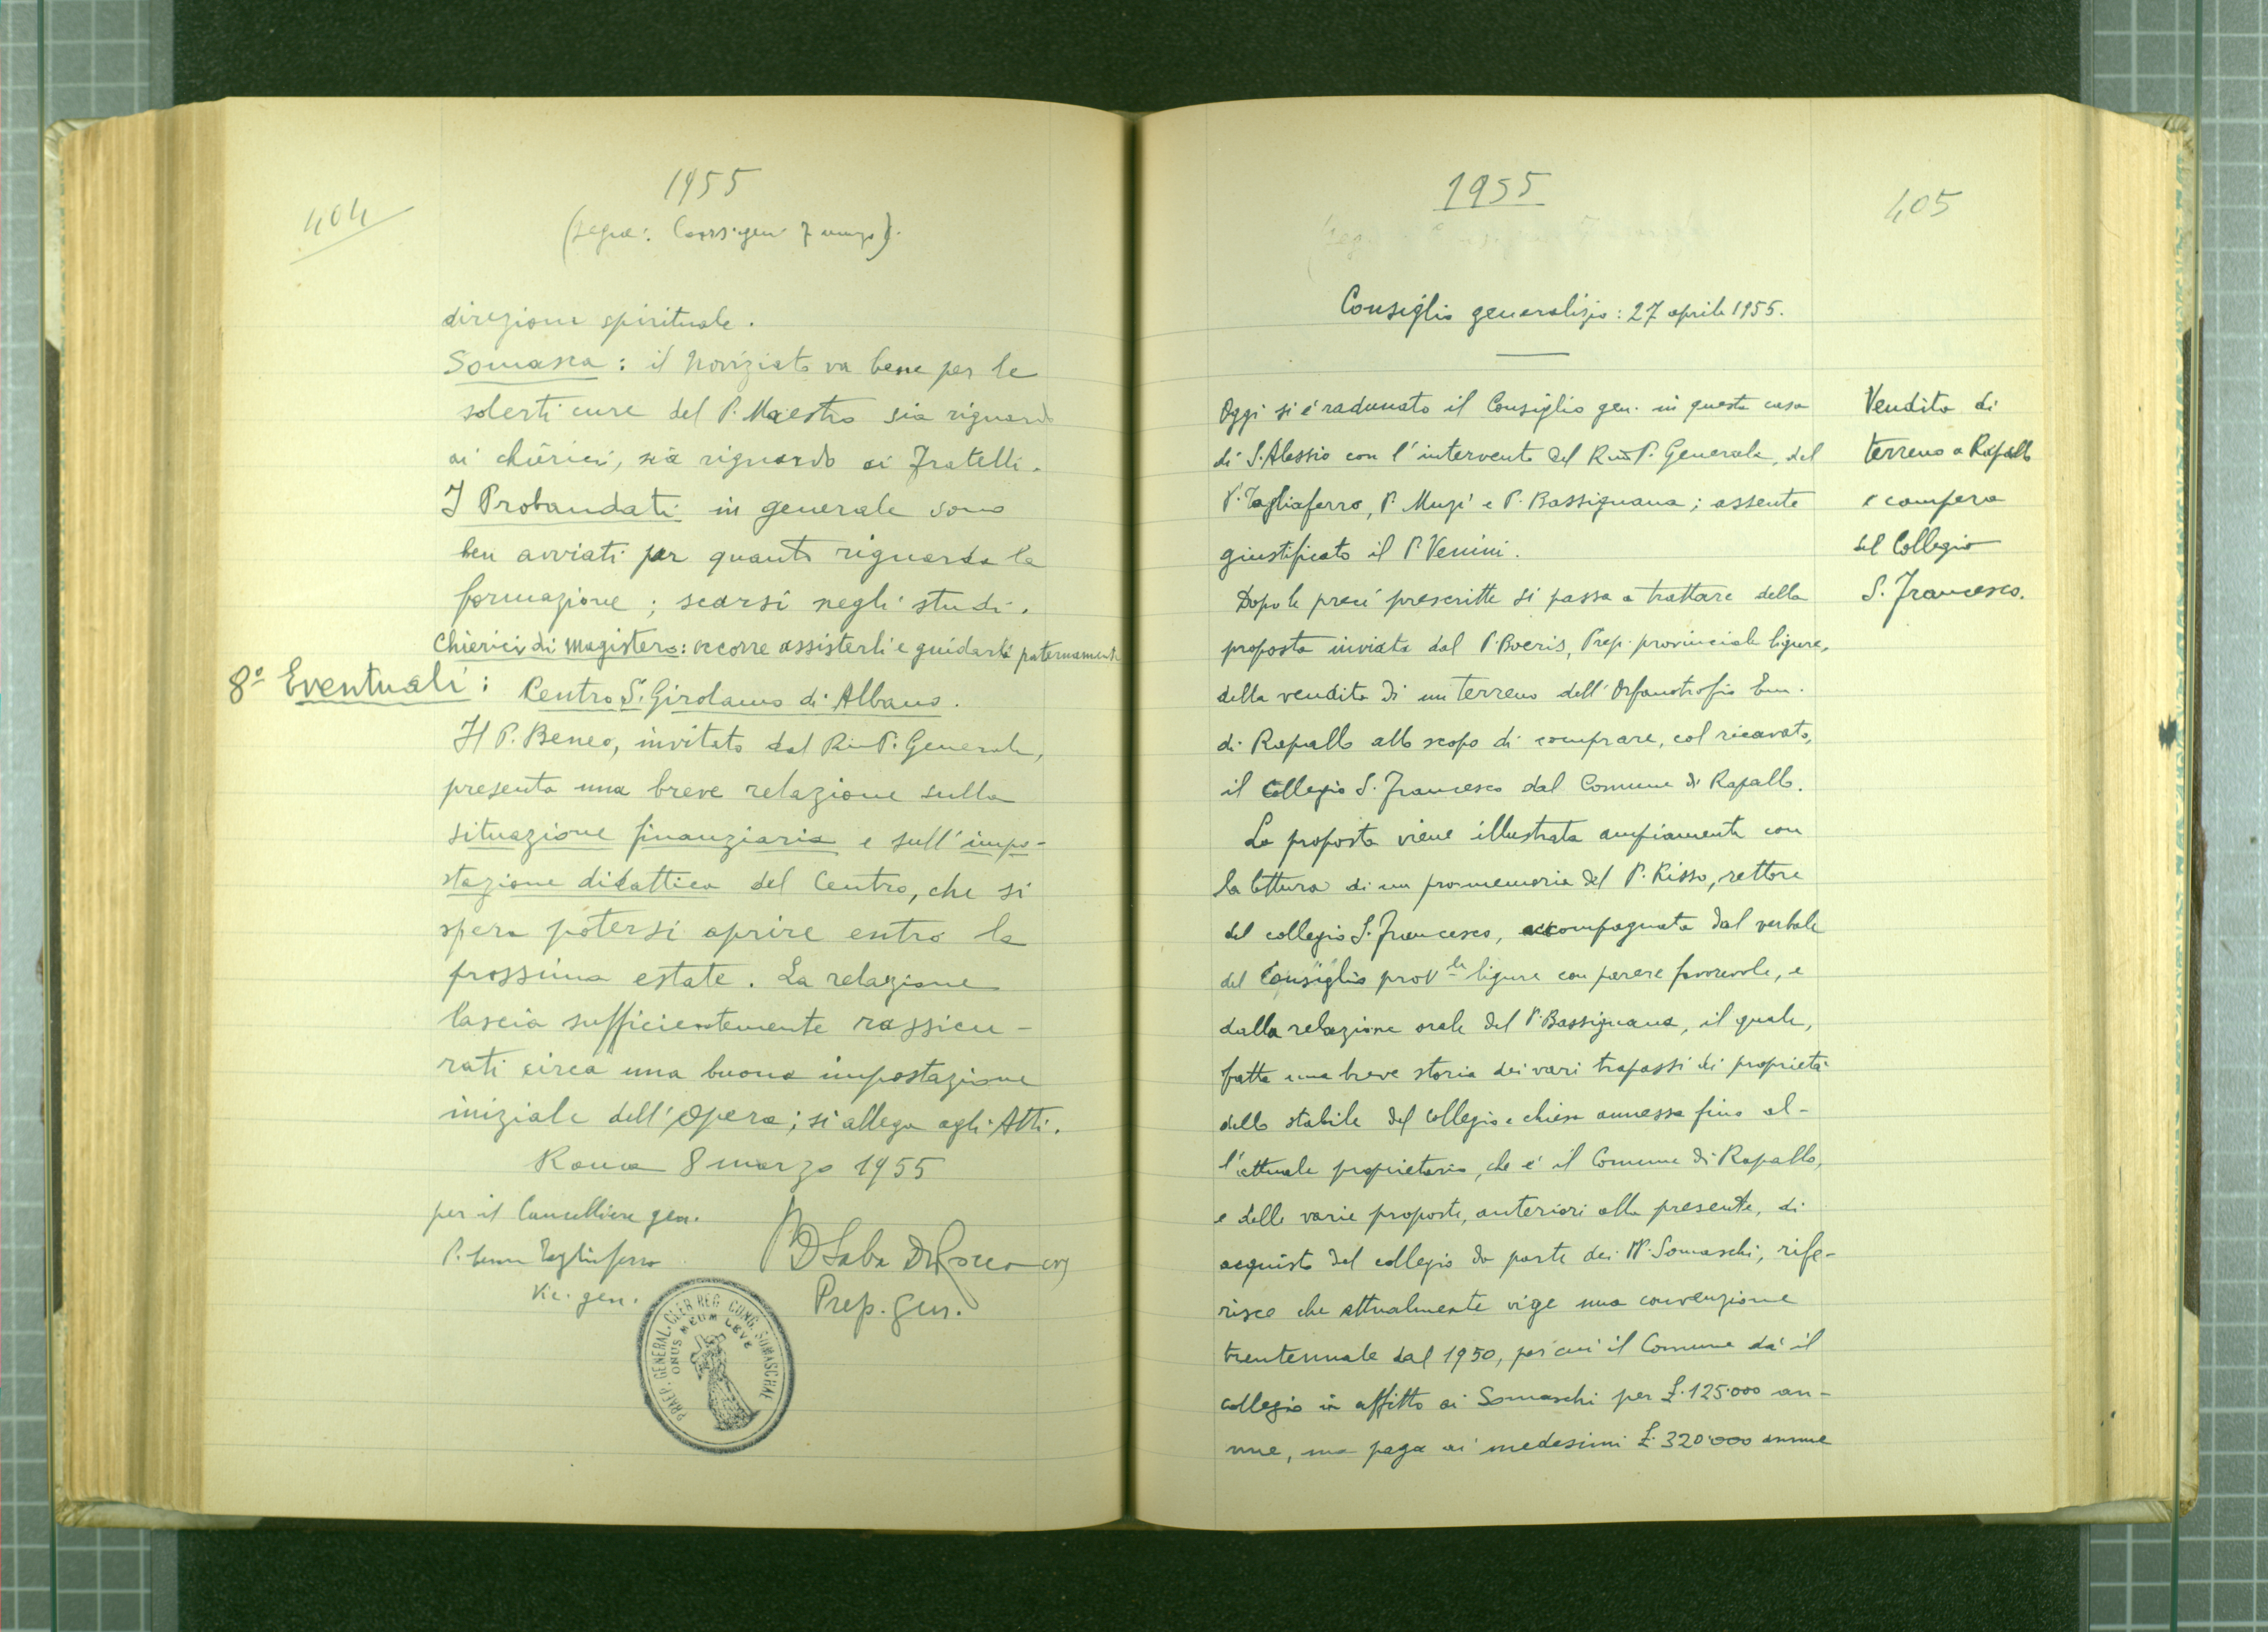 404
1955
(segue: Cons. gen. 7 marzo).
direzione spirituale.
Somasca: il Noviziato va bene per le
solerti cure del P. Maestro sia riguardo
ai chierici, sia riguardo ai Fratelli.
I Probandati in generale sono
ben avviati per quanto riguarda la
formazione; scarsi negli studi.
Chierici di magistero: occorre assisterli e guidarli paternamente
8° Eventuali: Centro S. Girolamo di Albano.
Il P. Beneo, invitato dal Rev.mo P. Generale,
presenta una breve relazione sulla
situazione finanziaria e sull'impo-
stazione didattica del Centro, che si
spera potersi aprire entro la
prossima estate. La relazione
lascia sufficientemente rassicu-
rati circa una buona impostazione
iniziale dell'Opera; si allega agli Atti.
Roma 8 marzo 1955
per il Cancelliere gen.
P. Tagliaferro
Vic. gen.
P. D Saba De Rocco crs
Prep. gen.
PRAEP. GENERAL. CLER. REG. CONG. SOMASCHAE
ONUS MEUM LEVE
1955
405
Consiglio generalizio: 27 aprile 1955.
Vendita di
terreno a Rapallo
e compera
del Collegio
S. Francesco.
Oggi si è radunato il Consiglio gen. in questa casa
di S. Alessio con l'intervento del Rev.mo P. Generale, del
P. Tagliaferro, P. Muzi e P. Bassignana; assente
giustificato il P. Venini.
Dopo le preci prescritte si passa a trattare della
proposta inviata dal P. Boeris, Prep. provinciale ligure,
della vendita di un terreno dell'Orfanotrofio Em.
di Rapallo allo scopo di comprare, col ricavato,
il Collegio S. Francesco dal Comune di Rapallo.
La proposta viene illustrata ampiamente con
la lettura di un promemoria del P. Risso, rettore
del collegio S. Francesco, accompagnata dal verbale
del Consiglio prov.le ligure con parere favorevole, e
dalla relazione orale del P. Bassignana, il quale,
fatta una breve storia dei vari trapassi di proprietà
dello stabile del collegio e chiesa annessa fino al-
l'attuale proprietario, che è il Comune di Rapallo,
e delle varie proposte, anteriori alla presente, di
acquisto del collegio da parte dei PP. Somaschi, rife-
risce che attualmente vige una convenzione
trentennale dal 1950, per cui il Comune dà il
collegio in affitto ai Somaschi per £. 125.000 an-
nue, ma paga ai medesimi £. 320.000 annue